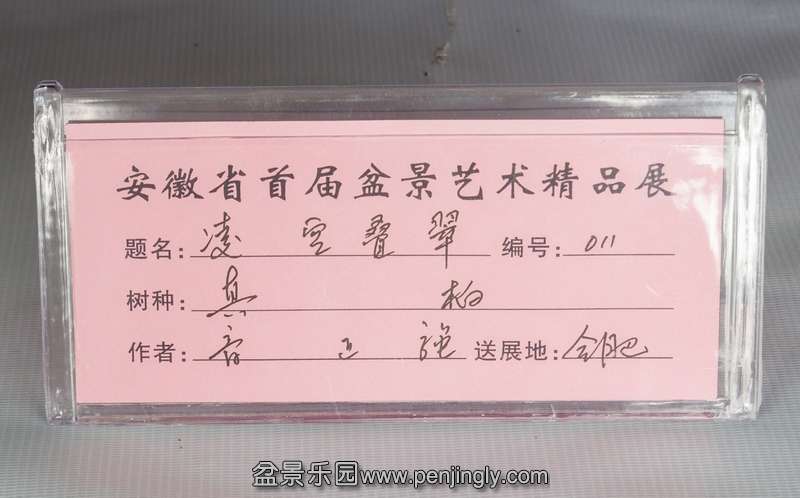 安徽省首届盆景艺术精品展
题名：凌空叠翠 编号：011
树种：真柏
作者： 送展地：合肥
盆景乐园www.penjingly.com